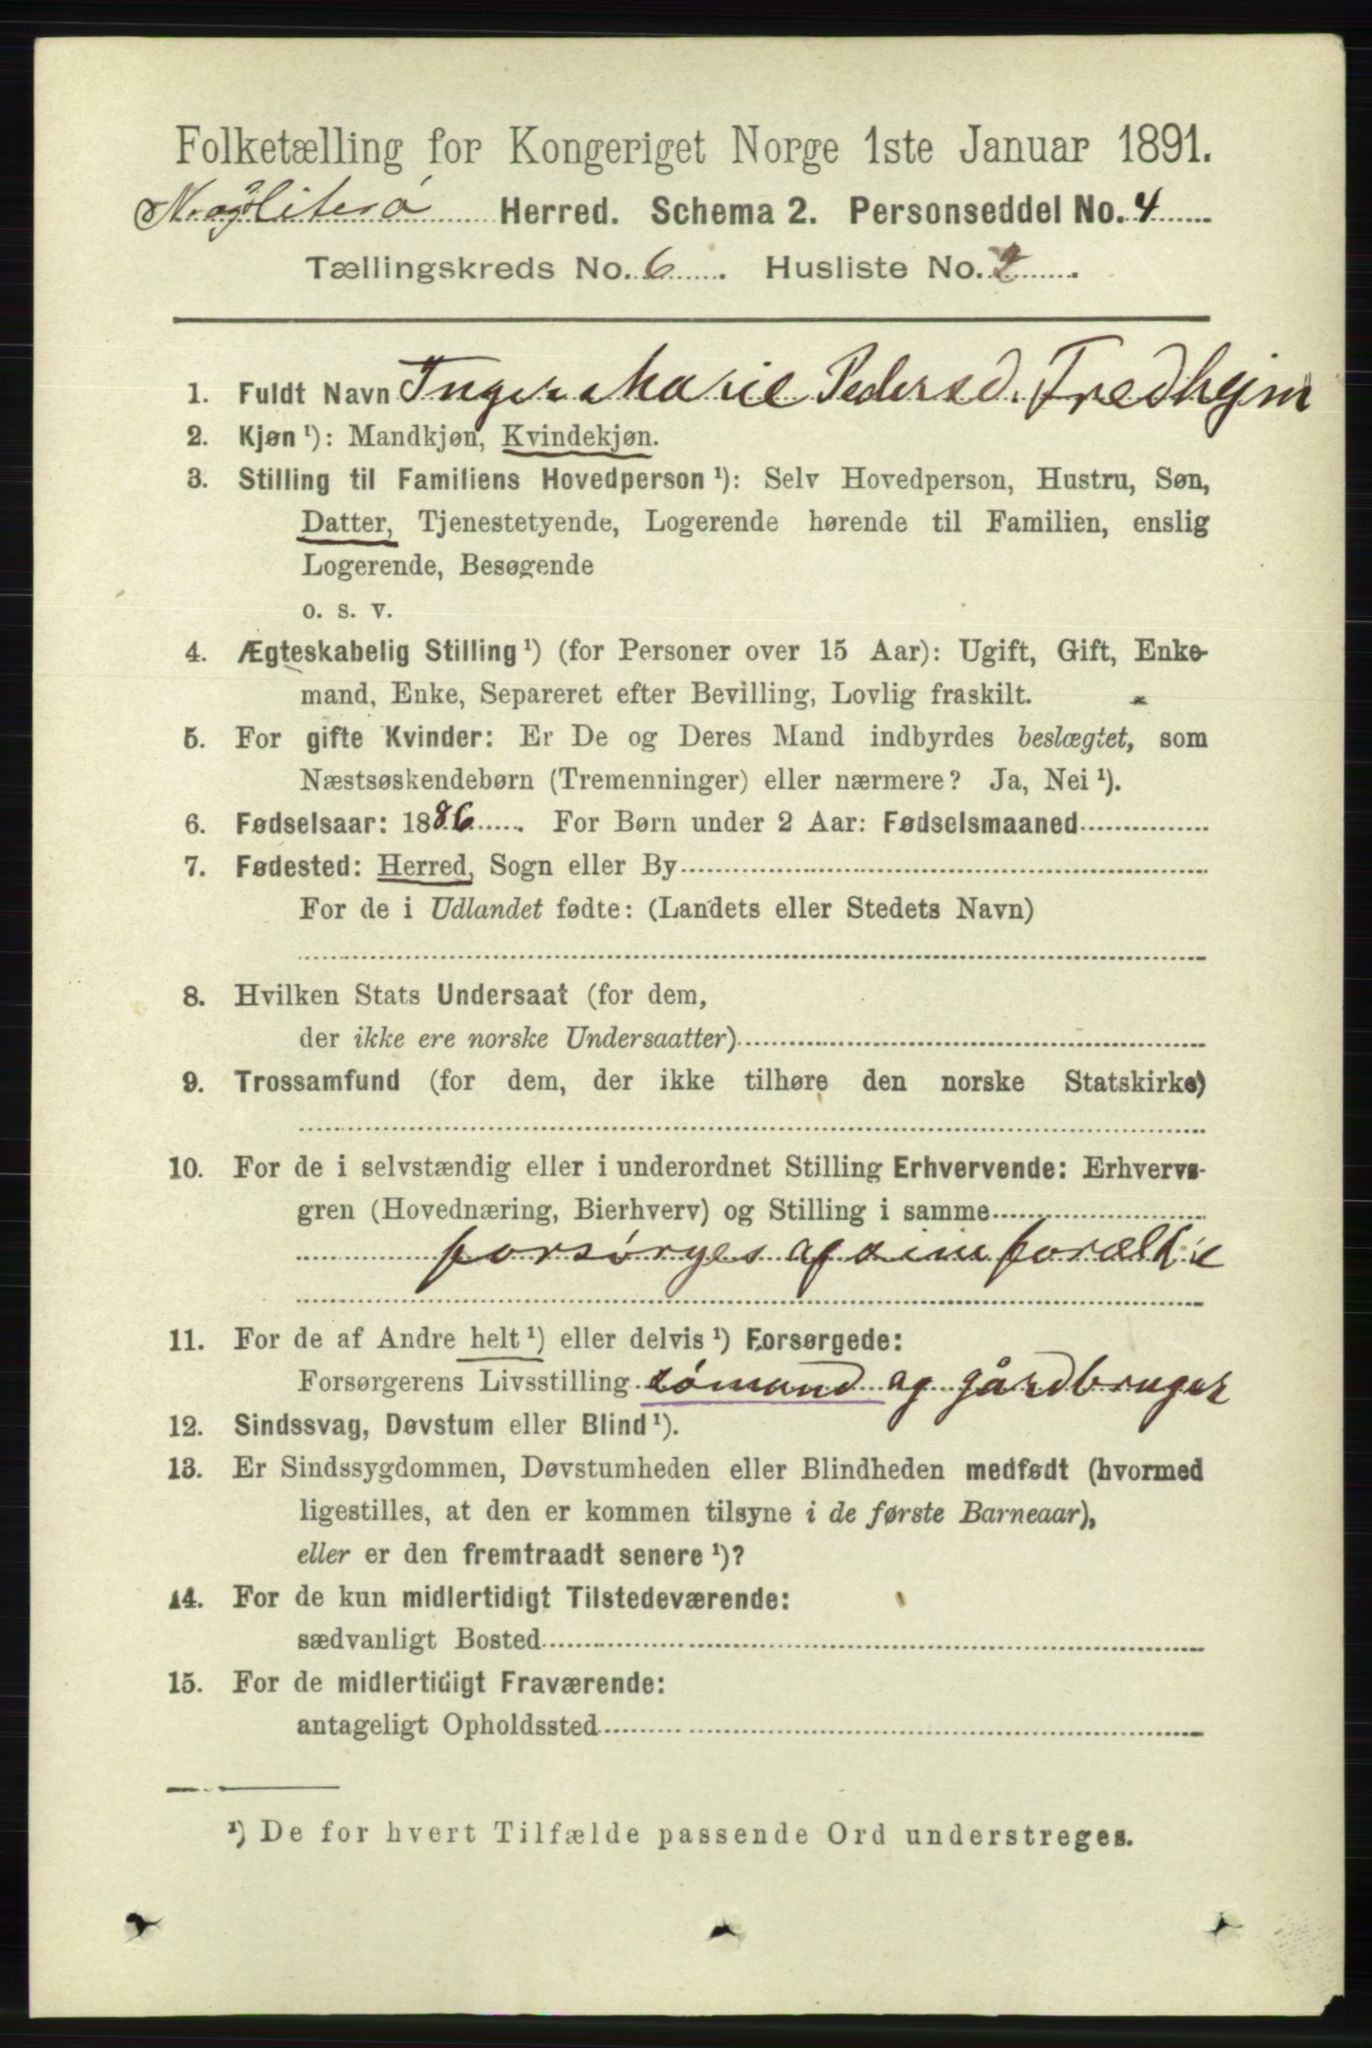 Folketælling for Kongeriget Norge 1ste Januar 1891.
N. og Hiterø Herred. Schema 2. Personseddel No. 4
Tællingskreds No. 6. Husliste No. 2.
1. Fuldt Navn Inger Marie Pedersd. Fredhejm
2. Kjøn ¹): Mandkjøn, Kvindekjøn.
3. Stilling til Familiens Hovedperson ¹): Selv Hovedperson, Hustru, Søn,
Datter, Tjenestetyende, Logerende hørende til Familien, enslig
Logerende, Besøgende
o. s. v.
4. Ægteskabelig Stilling ¹) (for Personer over 15 Aar): Ugift, Gift, Enke-
mand, Enke, Separeret efter Bevilling, Lovlig fraskilt.
5. For gifte Kvinder: Er De og Deres Mand indbyrdes beslægtet, som
Næstsøskendebørn (Tremenninger) eller nærmere? Ja, Nei ¹).
6. Fødselsaar: 1886. For Børn under 2 Aar: Fødselsmaaned
7. Fødested: Herred, Sogn eller By
For de i Udlandet fødte: (Landets eller Stedets Navn)
8. Hvilken Stats Undersaat (for dem,
der ikke ere norske Undersaatter)
9. Trossamfund (for dem, der ikke tilhøre den norske Statskirke)
10. For de i selvstændig eller i underordnet Stilling Erhvervende: Erhvervs-
gren (Hovednæring, Bierhverv) og Stilling i samme
forsørges af sine forældre
11. For de af Andre helt ¹) eller delvis ¹) Forsørgede:
Forsørgerens Livsstilling sømand og gårdbruger
12. Sindssvag, Døvstum eller Blind ¹).
13. Er Sindssygdommen, Døvstumheden eller Blindheden medfødt (hvormed
ligestilles, at den er kommen tilsyne i de første Barneaar),
eller er den fremtraadt senere ¹)?
14. For de kun midlertidigt Tilstedeværende:
sædvanligt Bosted
15. For de midlertidigt Fraværende:
antageligt Opholdssted
¹) De for hvert Tilfælde passende Ord understreges.